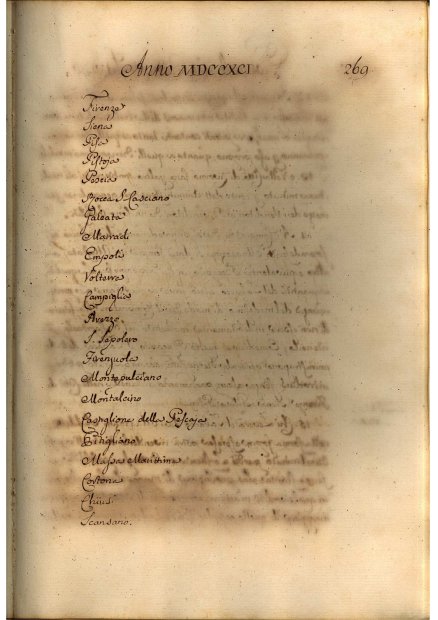 Anno MDCCXCI 269
Firenze
Siena
Pisa
Pistoja
Pescia
Rocca S. Casciano
Galeata
Marradi
Empoli
Volterra
Campiglia
Arezzo
S. Sepolcro
Firenzuola
Montepulciano
Montalcino
Castiglione della Pescaja
Pitigliano
Massa Marittima
Cortona
Chiusi
Scansano.